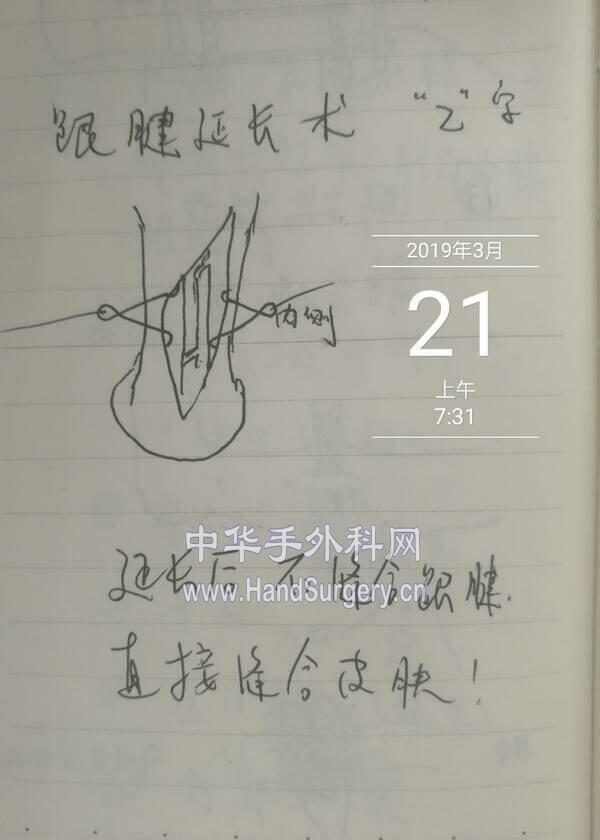 跟腱延长术 "Z"字
2019年3月
21
上午
7:31
内侧
中华手外科网
www.HandSurgery.cn
延长后不缝合跟腱.
直接缝合皮肤！